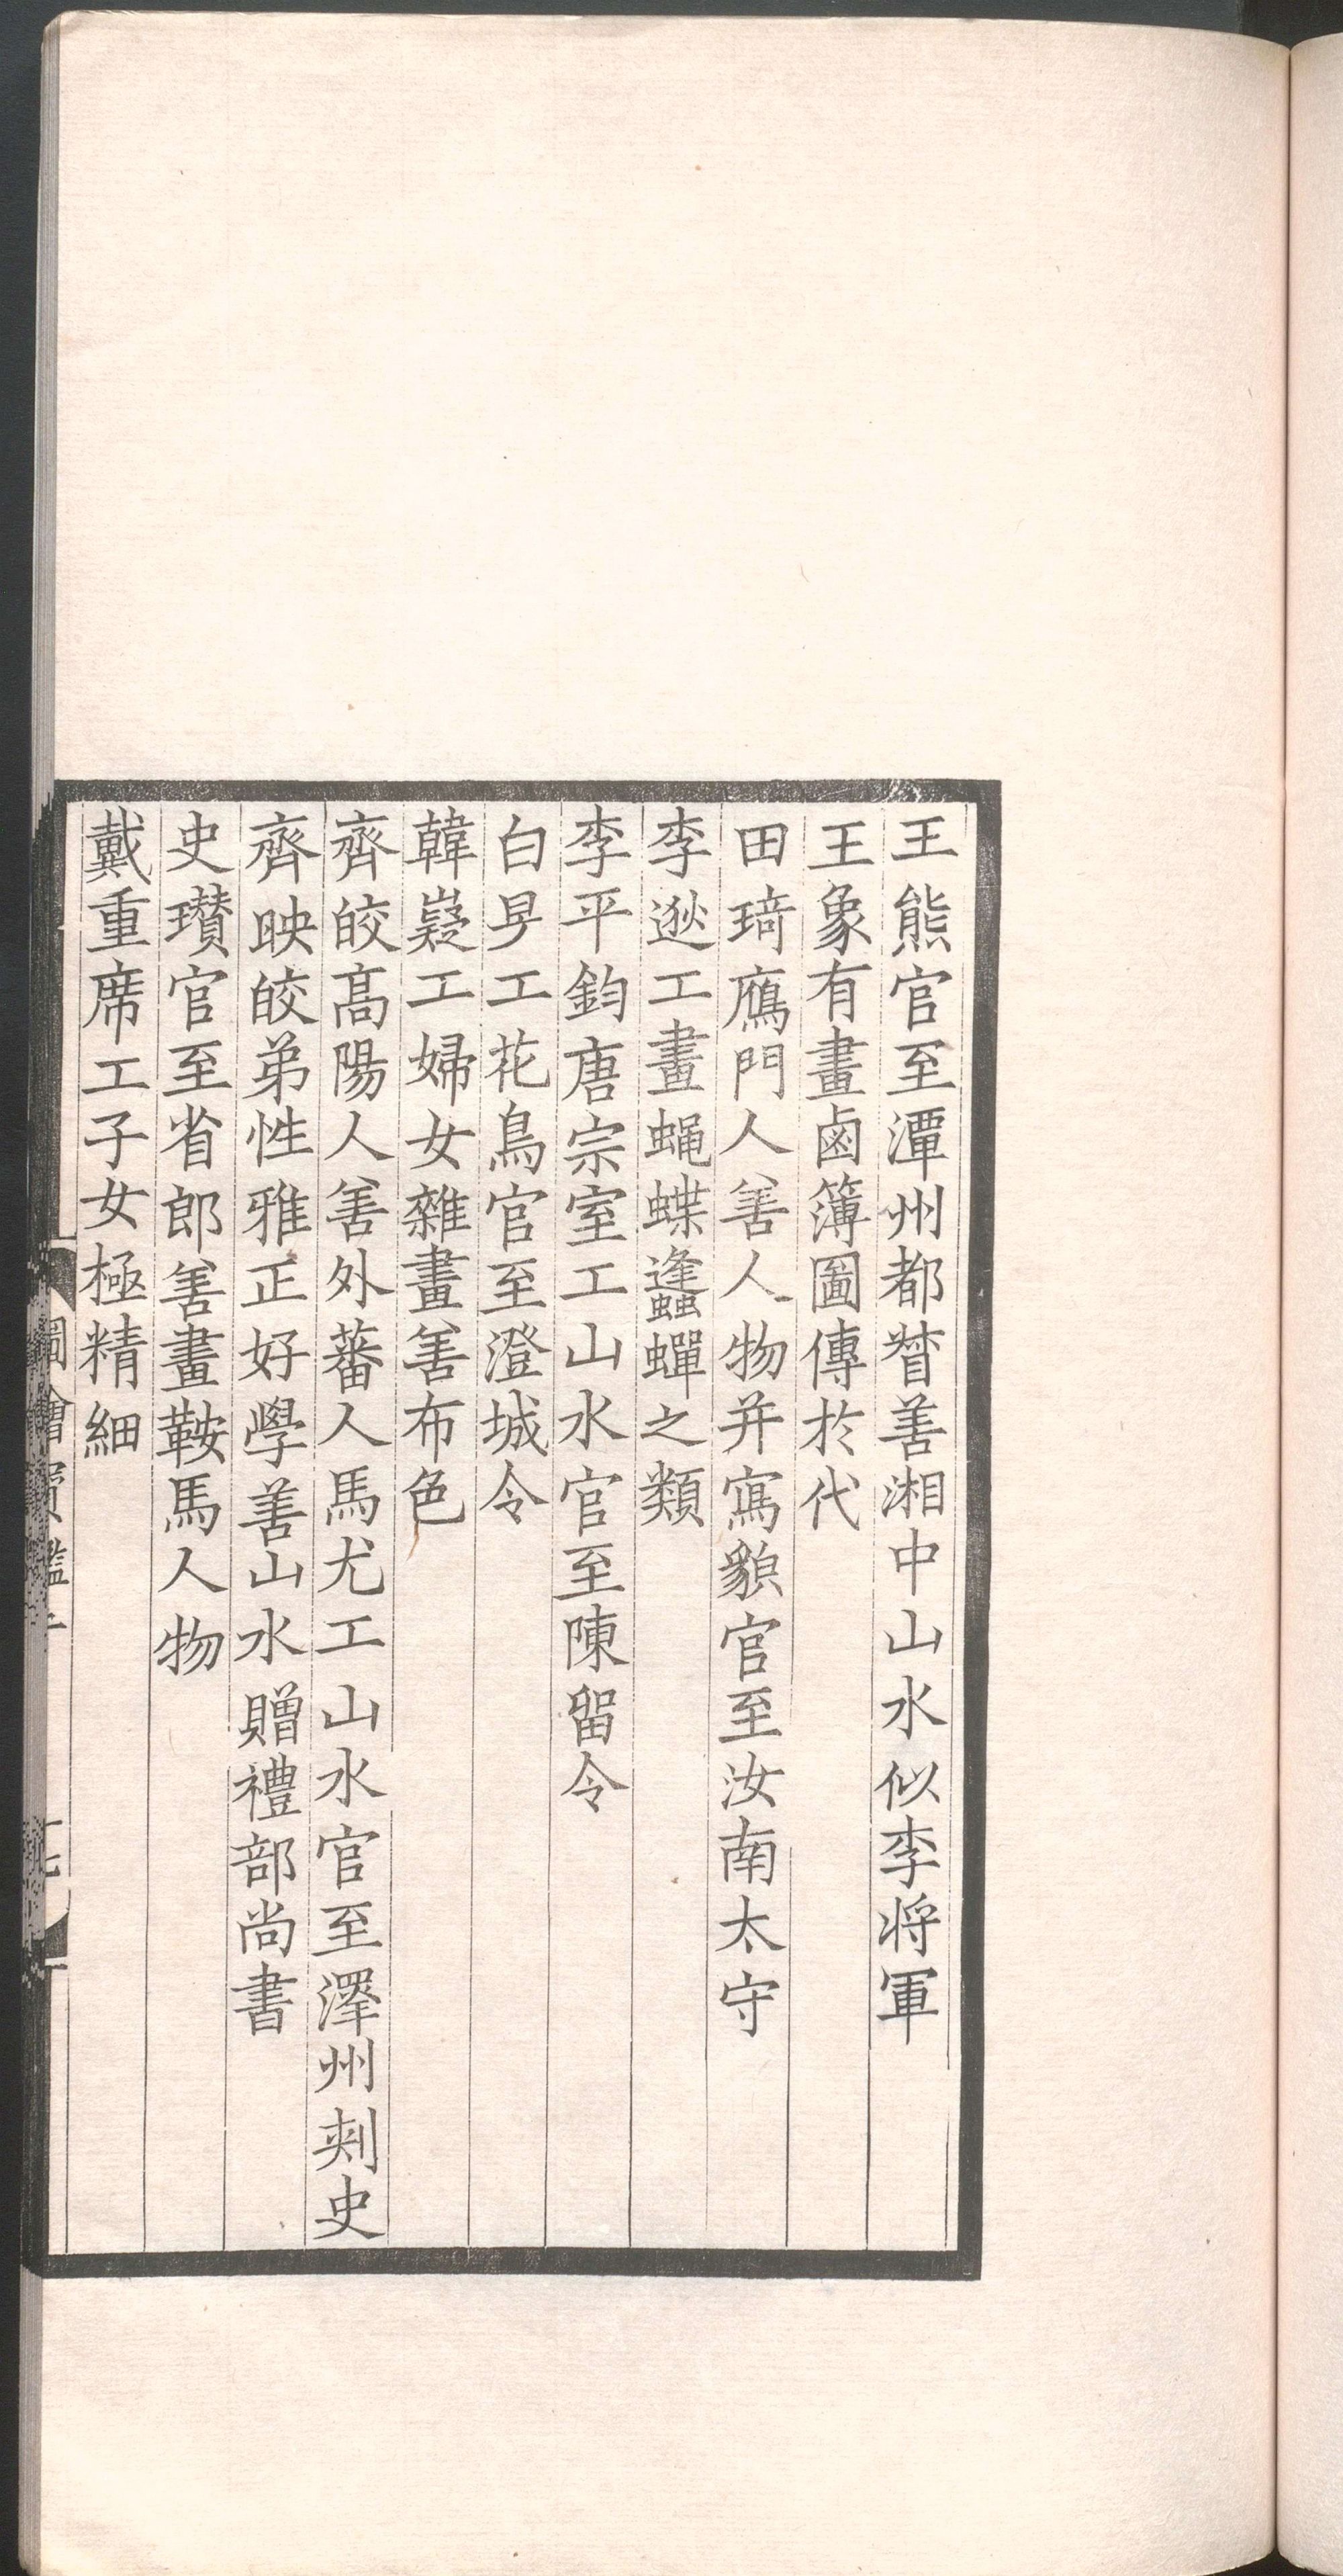 王熊官至潭州都督善湘中山水似李将軍
王象有畫鹵簿圖傳於代
田琦鴈門人善人物并寫貌官至汝南太守
李逖工畫蠅蝶蠭蟬之類
李平鈞唐宗室工山水官至陳留令
白旻工花鳥官至澄城令
韓嶷工婦女雜畫善布色
齊皎高陽人善外蕃人馬尤工山水官至澤州刾史
齊映皎弟性雅正好學善山水贈禮部尚書
史瓚官至省郎善畫鞍馬人物
戴重席工子女極精細